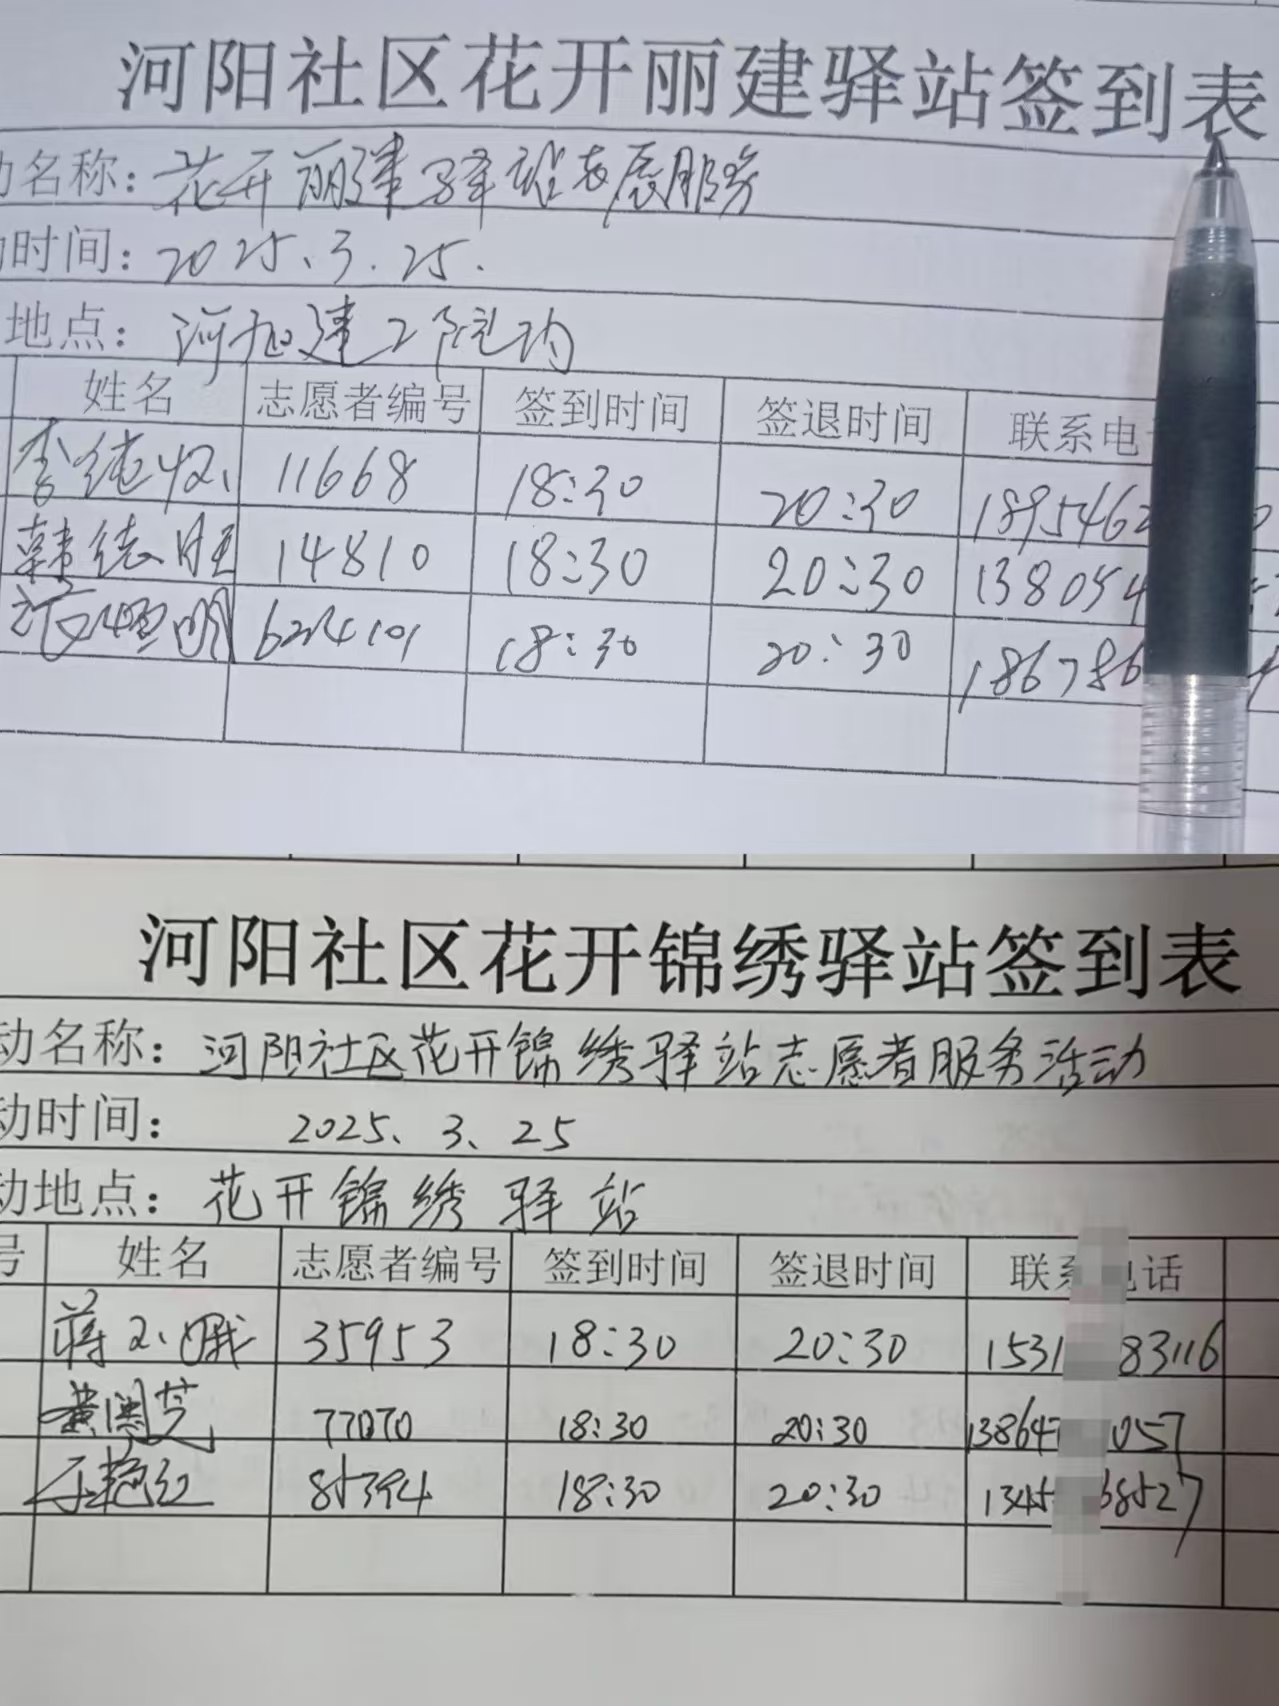 河阳社区花开丽建驿站签到表
动名称：花开丽建驿站志愿服务
动时间：2025.3.25.
地点：河阳建工院内
姓名 志愿者编号 签到时间 签退时间 联系电
李 11668 18:30 20:30 1895462
韩德旺 14810 18:30 20:30 138054
明 18:30 20:30 186786
河阳社区花开锦绣驿站签到表
动名称：河阳社区花开锦绣驿站志愿者服务活动
动时间：2025、3、25
动地点：花开锦绣驿站
号 姓名 志愿者编号 签到时间 签退时间 联系电话
蒋 35953 18:30 20:30 1531 83116
黄 芝 77070 18:30 20:30 13864 057
于艳红 85394 18:30 20:30 1345 68527